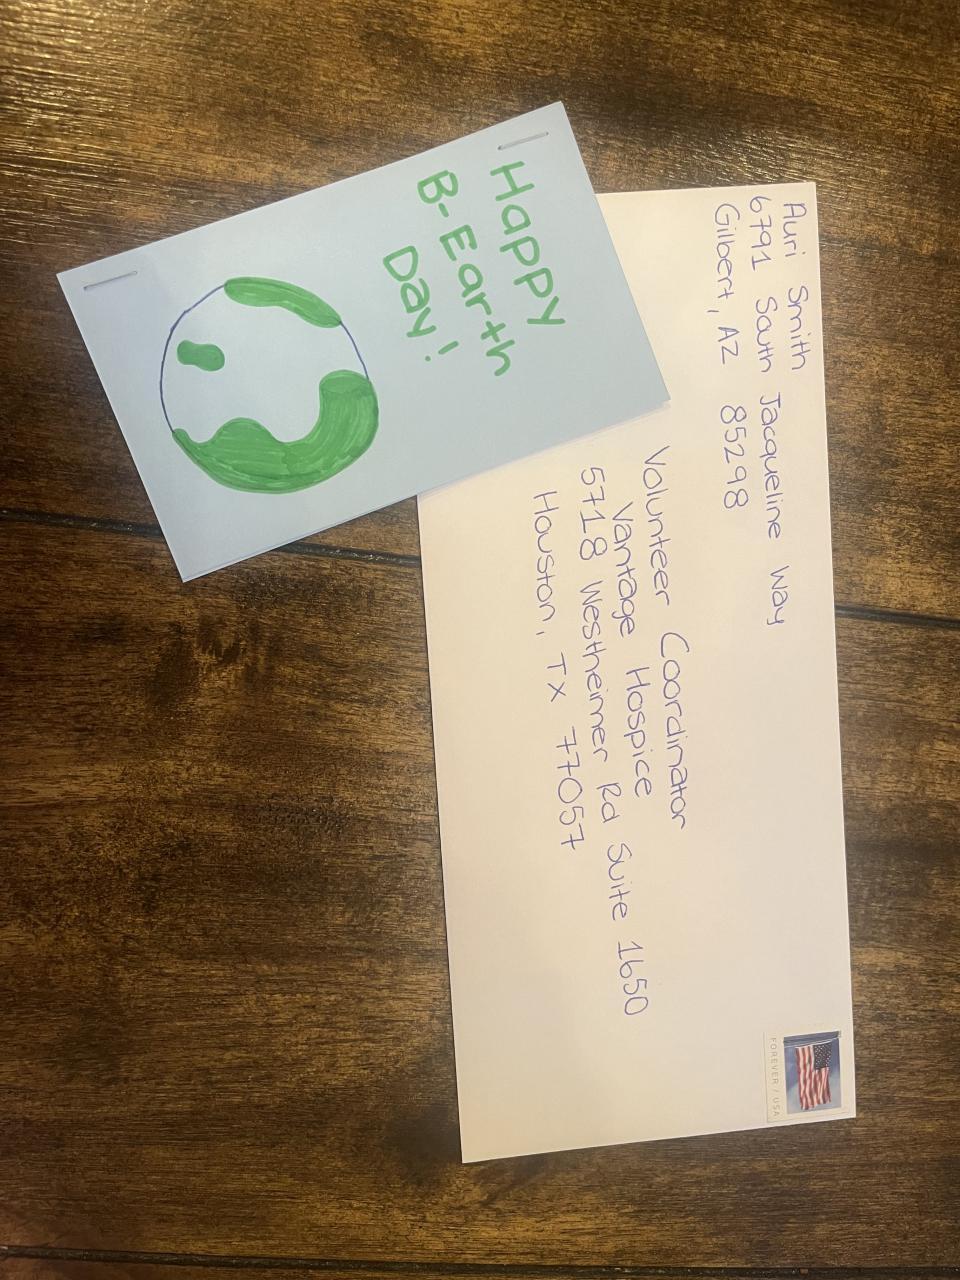 Happy
B-Earth
Day!
Auri Smith
6791 South Jacqueline Way
Gilbert, AZ 85298
Volunteer Coordinator
Vantage Hospice
5718 Westheimer Rd Suite 1650
Houston, TX 77057
FOREVER / USA